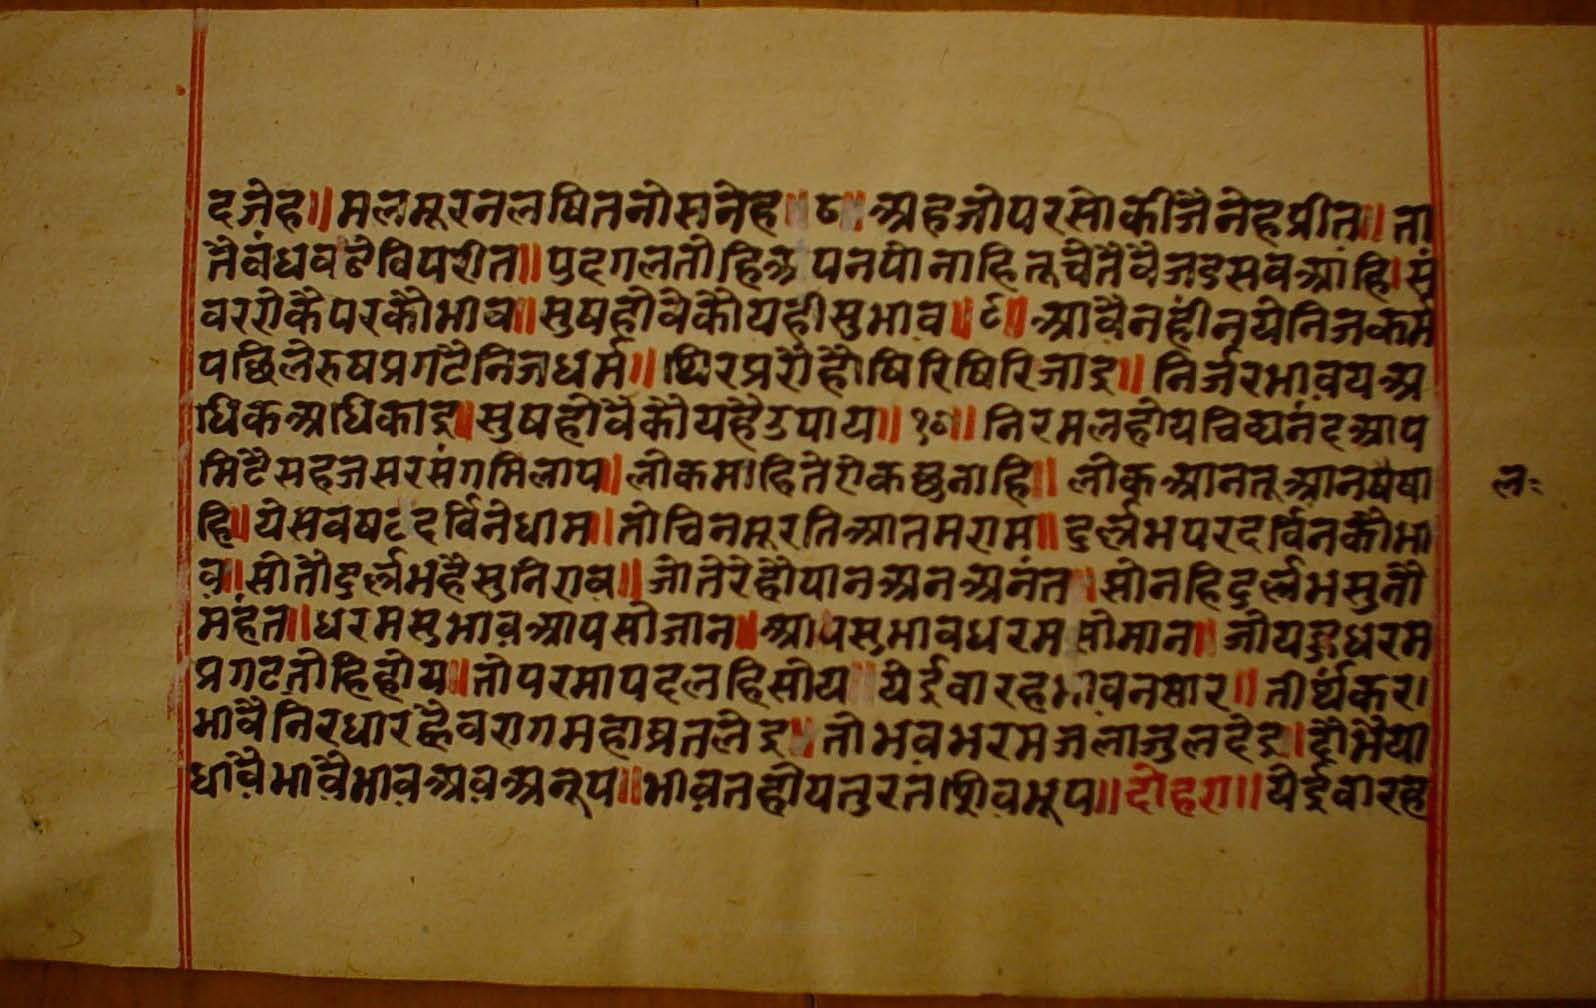 दजेह॥ मलमूरनलषितनोसनेह॥ ८॥ अहजोपरसोकीजैनेहप्रीत॥ ता
तैबंधवढैविपरीत॥ पुदगलतोहिअपनपोनाहितूचेतैवैजडसबआंहि। सं
वररोकैपरकौभाव॥ सुषहोवेकौयहीसुभाव॥ ९॥ आवैनहीनयेनिजकर्म
पछिलेरुषप्रगटैनिजधर्म॥ थिरप्ररोहौषिरिषिरिजाइ॥ निर्जरभावयअ
धिकअधिकाइ॥ सुषहोवेकौयहैउपाय॥ १०॥ निरमलहोयचिद्यनंदआप
मिटैसहजसरसंगमिलाप॥ लोकमाहितेरोकछुनाहि॥ लोकआनतूआनषैषा
हि॥ येसबषटदर्विनेधाम॥ तोचिनमूरतिआतमराम॥ दुर्ल्लभपरदर्विनकौभा
व॥ सोतौदुर्ल्लभहैसुनिराव॥ जोतेरेहौयानअनअनंत॥ सोनहिदुर्ल्लभसुनौ
महंत॥ धरमसुभावआपसोजान॥ आपसुभावधरमसोमान॥ जौयहधरम
प्रगटतोहिहोय॥ तोपरमापदलहिसोय॥ येईबारहभावनसार॥ तीर्थंकरा
भावैनिरधारह्वैवरागमहाव्रतलेइ॥ तोभवभरमजलाजुलहेइ॥ दोभैया
धावैभावैभावअवअनूप॥ भावतहोयतुरतशिवभूप॥ दोहरा॥ येईबारह
लः